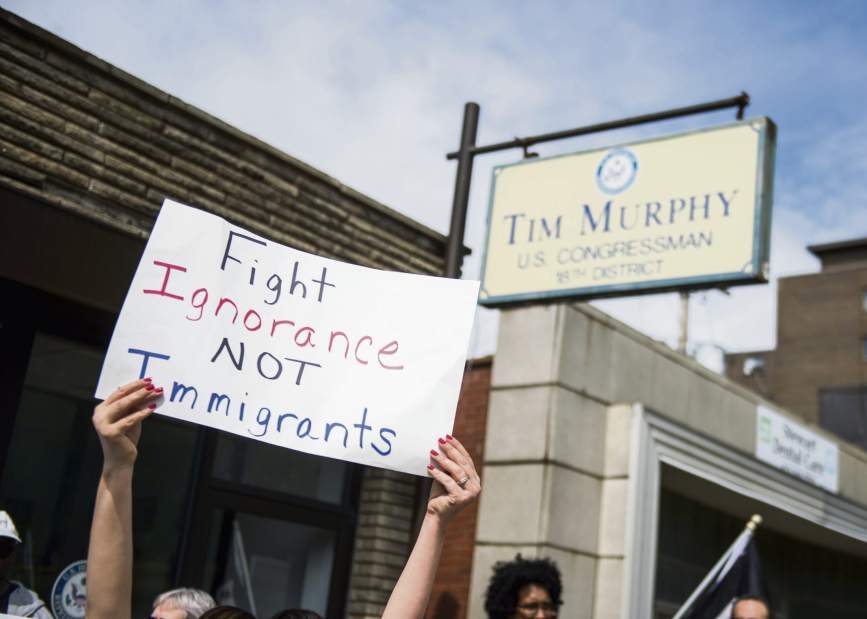 Fight
Ignorance
NOT
Immigrants
TIM MURPHY
U.S. CONGRESSMAN
18TH DISTRICT
Dental Care